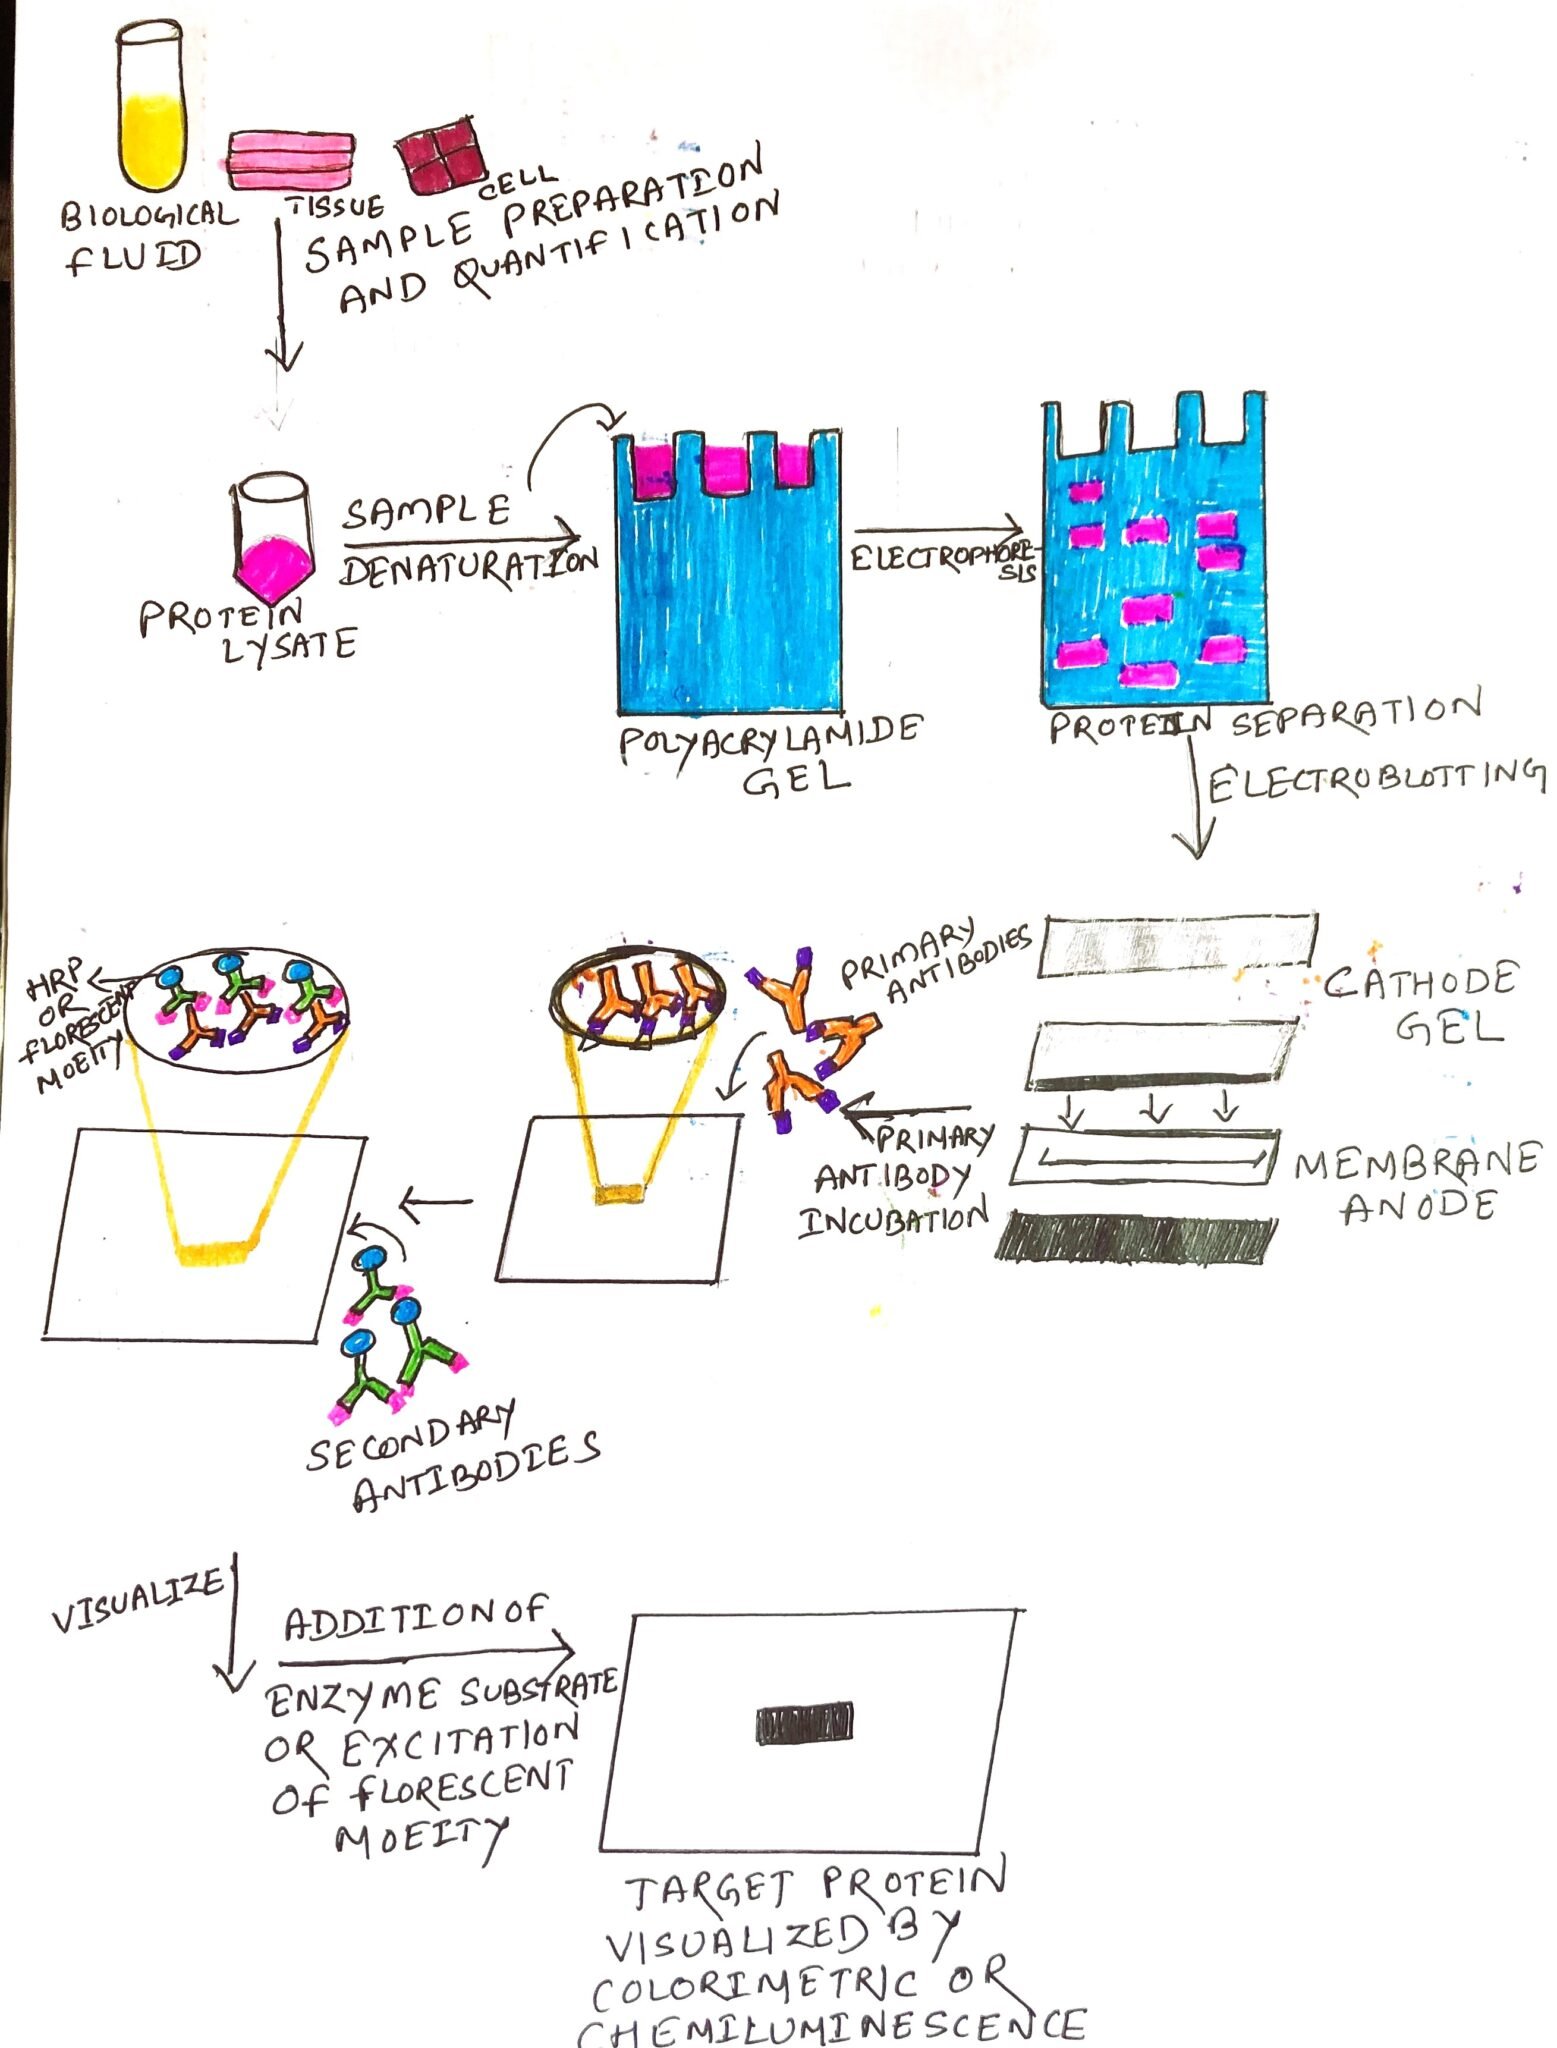 BIOLOGICAL
FLUID
TISSUE
CELL
SAMPLE PREPARATION
AND QUANTIFICATION
PROTEIN
LYSATE
SAMPLE
DENATURATION
POLYACRYLAMIDE
GEL
ELECTROPHORE-
SIS
PROTEIN SEPARATION
ELECTROBLOTTING
CATHODE
GEL
MEMBRANE
ANODE
PRIMARY
ANTIBODIES
PRIMARY
ANTIBODY
INCUBATION
HRP
OR
FLORESCENT
MOEITY
SECONDARY
ANTIBODIES
VISUALIZE
ADDITION OF
ENZYME SUBSTRATE
OR EXCITATION
OF FLORESCENT
MOEITY
TARGET PROTEIN
VISUALIZED BY
COLORIMETRIC OR
CHEMILUMINESCENCE